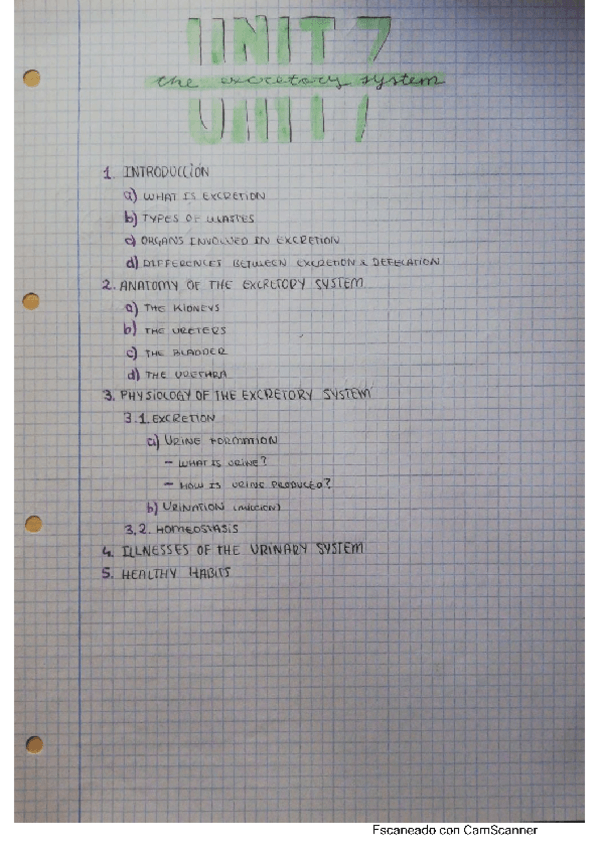 UNIT 7
the excretory system
1. INTRODUCCIÓN
a) WHAT IS EXCRETION
b) TYPES OF WASTES
c) ORGANS INVOLVED IN EXCRETION
d) DIFFERENCES BETWEEN EXCRETION & DEFECATION
2. ANATOMY OF THE EXCRETORY SYSTEM
a) THE KIDNEYS
b) THE URETERS
c) THE BLADDER
d) THE URETHRA
3. PHYSIOLOGY OF THE EXCRETORY SYSTEM
3.1. EXCRETION
a) URINE FORMATION
- WHAT IS URINE?
- HOW IS URINE PRODUCED?
b) URINATION
3.2. HOMEOSTASIS
4. ILLNESSES OF THE URINARY SYSTEM
5. HEALTHY HABITS
Escaneado con CamScanner